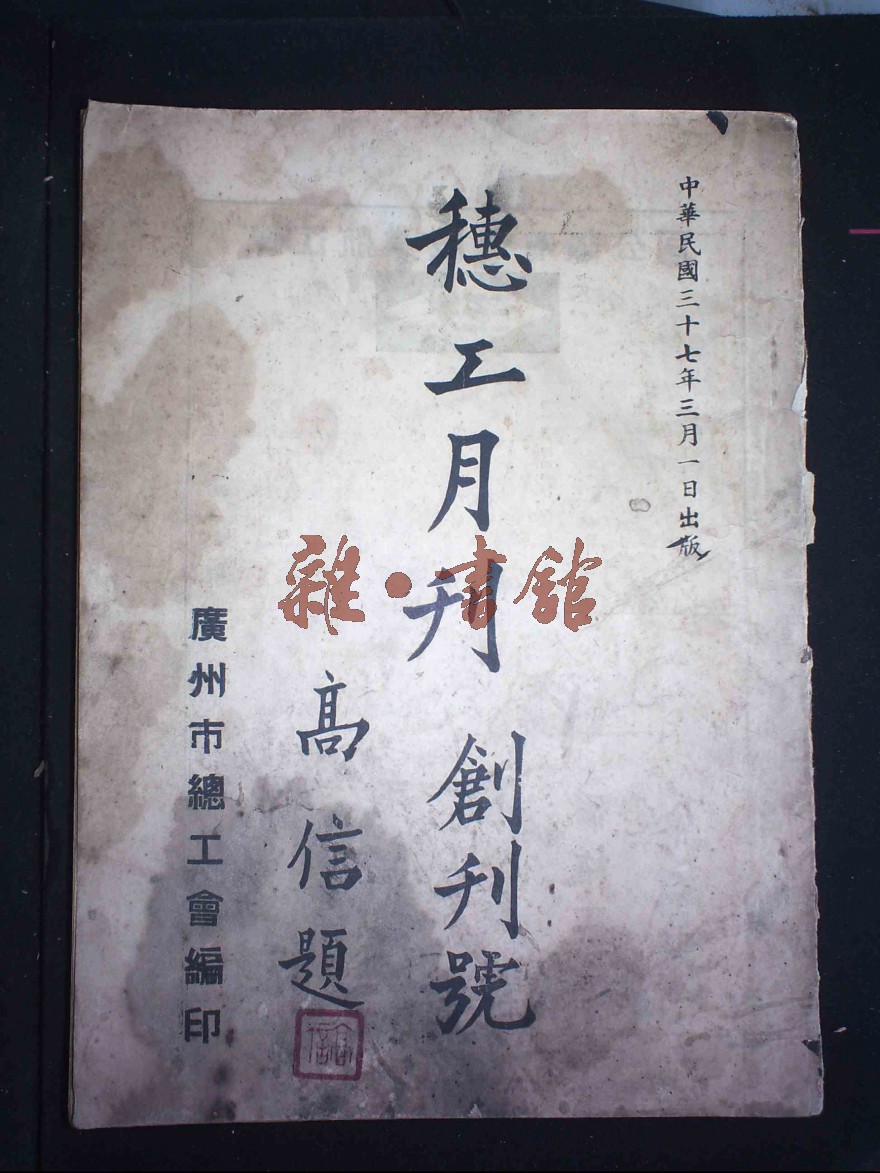 中華民國三十七年三月一日出版
穗工月刊 創刊號
高信題
廣州市總工會編印
雜·書館